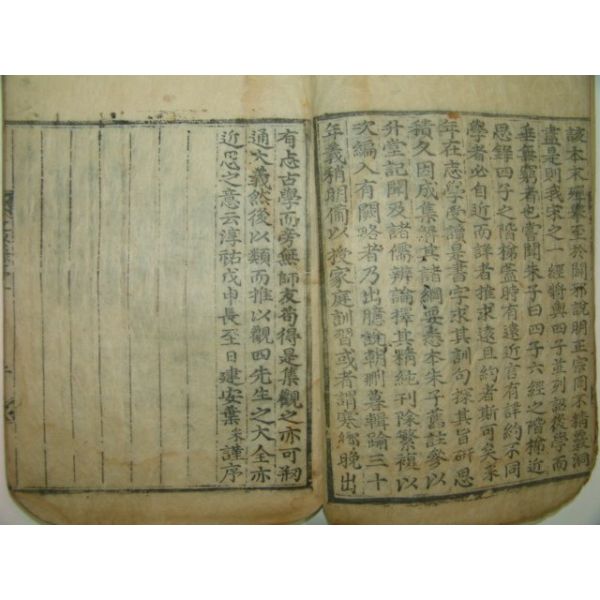 該本末殫舉至於闢邪說明正宗罔不精覈洞
盡是則我宋之一經將與四子並列詔後學而
垂無窮者也嘗聞朱子曰四子六經之階梯近
思錄四子之階梯蓋時有遠近言有詳約不同
學者必自近而詳者推求遠且約者斯可矣采
年在志學受讀是書字求其訓句探其旨研思
積久因成集解其諸綱要悉本朱子舊註參以
升堂記聞及諸儒辨論擇其精純刊除繁複以
次編入有闕略者乃出臆說朝刪暮輯踰三十
年義稍明備以授家庭訓習或者謂寒鄉晚出
有志古學而旁無師友苟得是集觀之亦可刱
通大義然後以類而推以觀四先生之大全亦
近思之意云淳祐戊申長至日建安葉采謹序